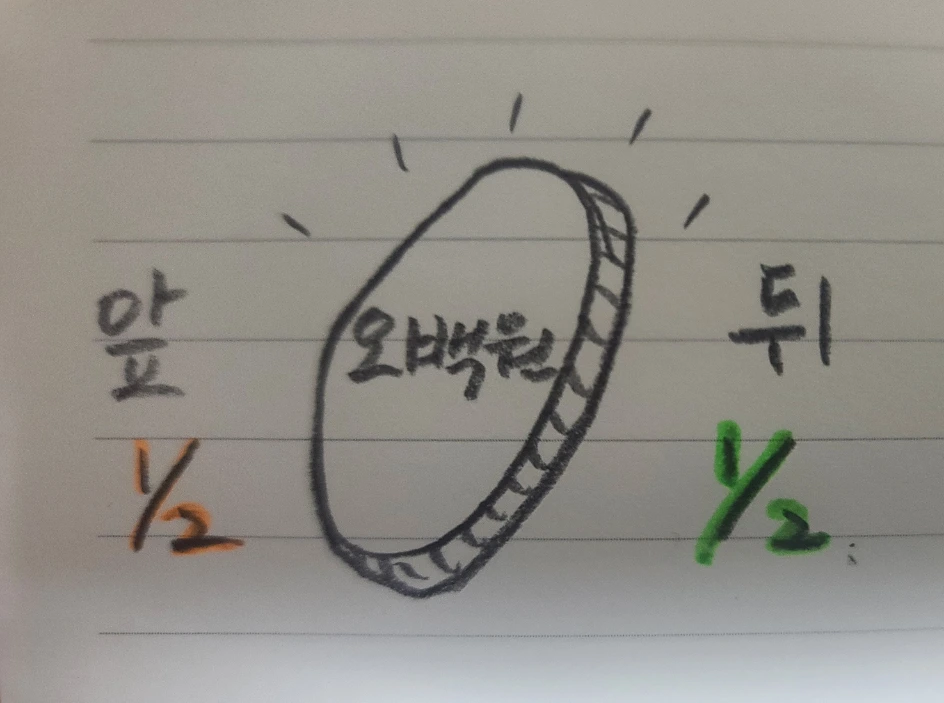 앞
오백원
뒤
1/2
1/2